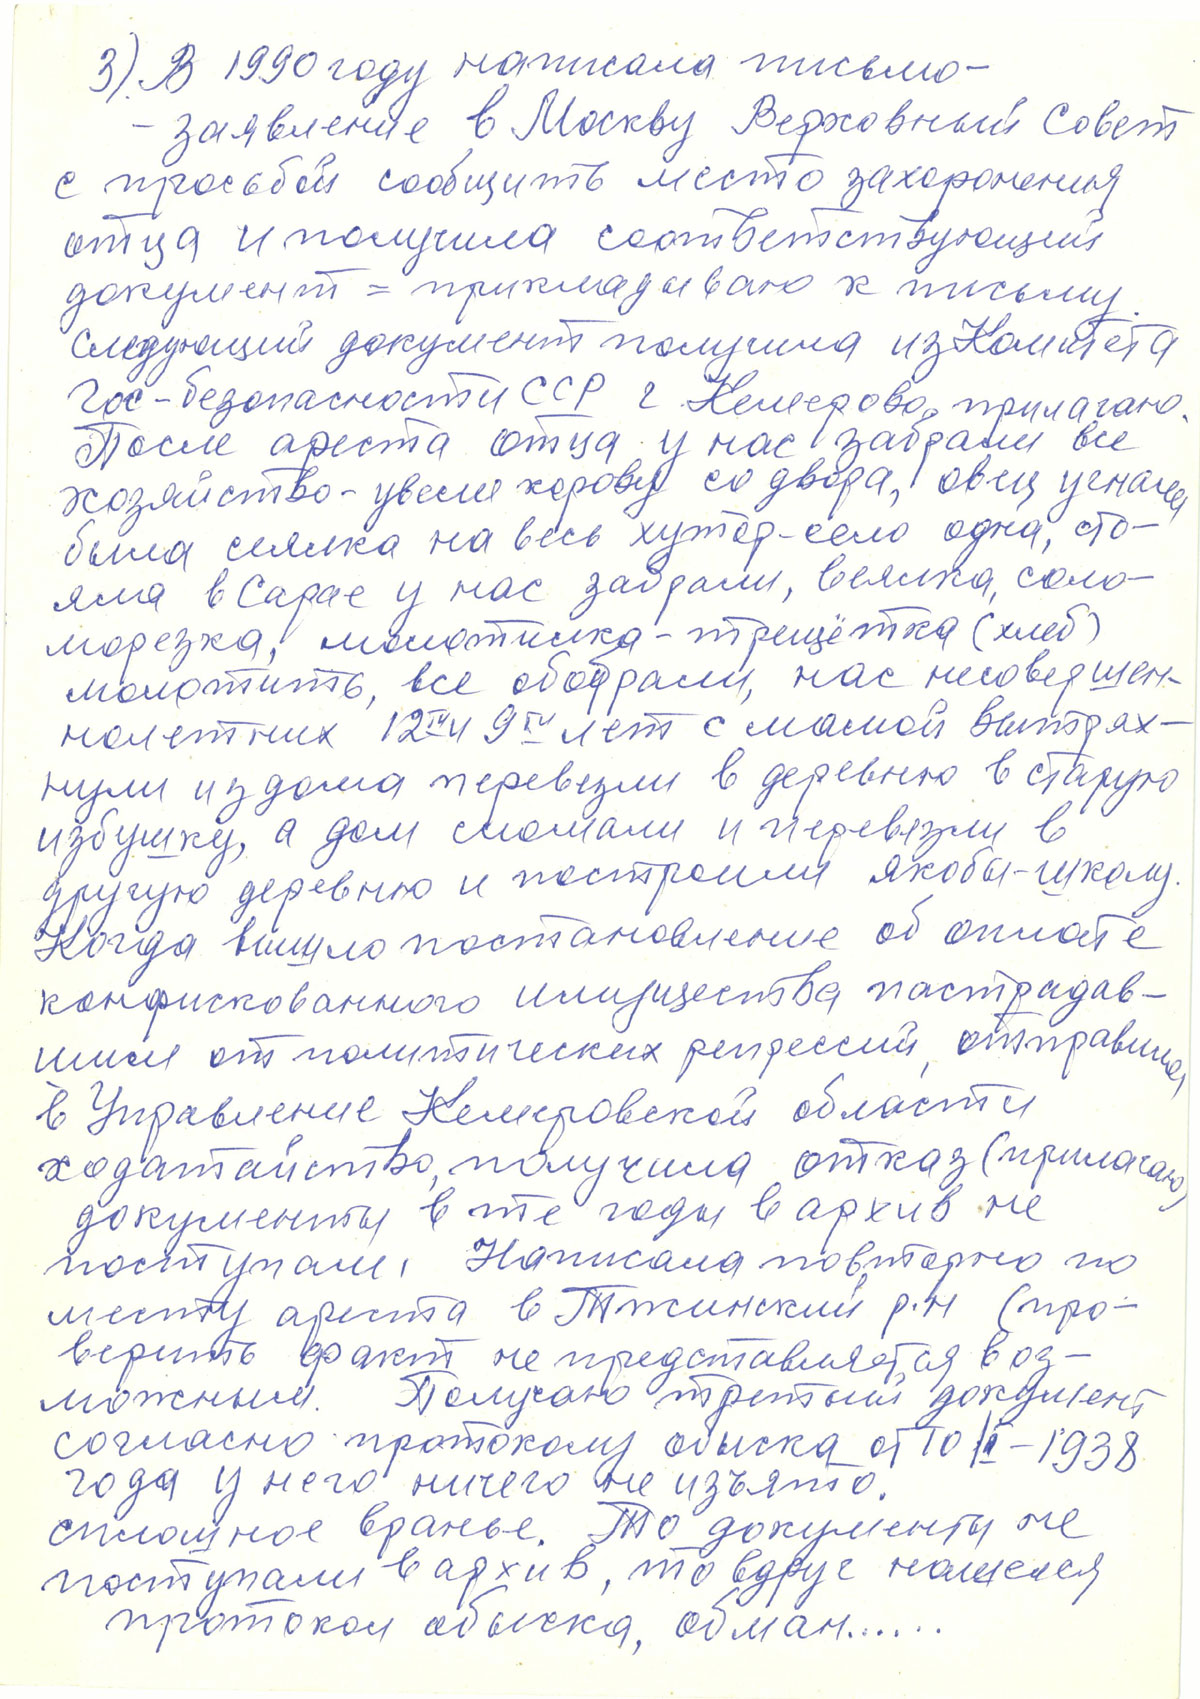 3). В 1990 году написала письмо-
- заявление в Москву Верховный Совет
с просьбой сообщить место захоронения
отца и получила соответствующий
документ = прикладываю к письму.
Следующий документ получила из Комитета
Гос-безопасности ССР г Кемерово, прилагаю.
После ареста отца у нас забрали все
хозяйство - увели корову со двора, овец угнали
была сеялка на весь хутор-село одна, сто-
яла в Сарае у нас забрали, веялка, соло-
морезка, молотилка - трещётка (хлеб)
молотить, все обобрали, нас несовершен-
нолетних 12ти 9ти лет с мамой вытрях-
нули из дома перевезли в деревню в старую
избушку, а дом сломали и перевезли в
другую деревню и построили якобы-школу.
Когда вышло постановление об оплате
конфискованного имущества пострадав-
шим от политических репрессий, отправила
в Управление Кемеровской области
ходатайство, получила отказ (прилагаю)
документы в те годы в архив не
поступали. Написала повторно по
месту ареста в Тяжинский р-н (про-
верить факт не представляется воз-
можным. Получаю третий документ
согласно протоколу обыска от 10 II - 1938
года у него ничего не изъято.
сплошное вранье. То документы не
поступали в архив, то вдруг нашелся
протокол обыска, обман......